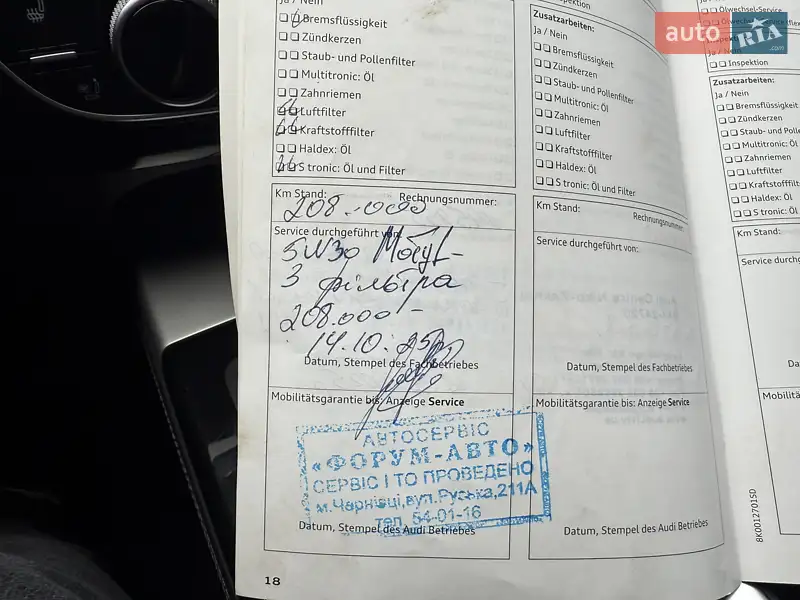 Ja / Nein
Bremsflüssigkeit
Zündkerzen
Staub- und Pollenfilter
Multitronic: Öl
Zahnriemen
Luftfilter
Kraftstofffilter
Haldex: Öl
S tronic: Öl und Filter
Km Stand:
Rechnungsnummer:
208.000
Service durchgeführt von:
5W30 Motyl-
3 фільтра
208.000-
14.10.25
Datum, Stempel des Fachbetriebes
Mobilitätsgarantie bis: Anzeige Service
АВТОСЕРВІС
«ФОРУМ-АВТО»
СЕРВІС І ТО ПРОВЕДЕНО
м.Чернівці,вул.Руська,211А
тел. 54-01-16
Datum, Stempel des Audi Betriebes
18
Inspektion
Zusatzarbeiten:
Ja / Nein
Bremsflüssigkeit
Zündkerzen
Staub- und Pollenfilter
Multitronic: Öl
Zahnriemen
Luftfilter
Kraftstofffilter
Haldex: Öl
S tronic: Öl und Filter
Km Stand:
Rechnungsnummer:
Service durchgeführt von:
Datum, Stempel des Fachbetriebes
Mobilitätsgarantie bis: Anzeige Service
Datum, Stempel des Audi Betriebes
8K0012701SD
Ölwechsel-Service
Inspektion
Zusatzarbeiten:
Ja / Nein
Bremsflüssigkeit
Zündkerzen
Staub- und Polle
Multitronic: Öl
Zahnriemen
Luftfilter
Kraftstofffilt
Haldex: Öl
S tronic: Öl
Km Stand:
Service durchg
Da
Mobilität
auto RIA
.com